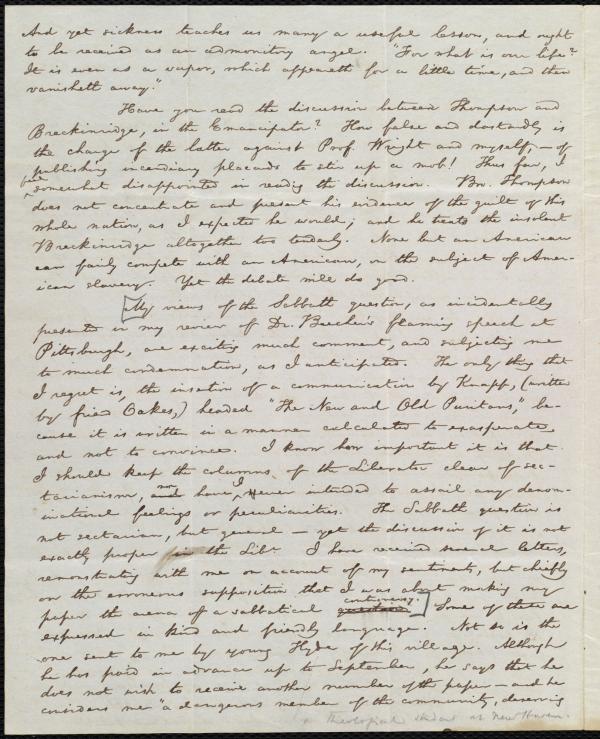 And yet sickness teaches us many a useful lesson, and ought
to be received as an admonitory angel. "For what is our life?
It is even as a vapor, which appeareth for a little time, and then
vanisheth away."
Have you read the discussion between Thompson and
Breckinridge, in the Emancipator? How false and dastardly is
the charge of the latter against Prof. Wright and myself, — of
publishing incendiary placards to stir up a mob! Thus far, I
somewhat disappointed in reading the discussion. Bro. Thompson
does not concentrate and present his evidence of the guilt of this
whole nation, as I expected he would; and he treats the insolent
Breckinridge altogether too tenderly. None but an American
can fairly compete with an American, on the subject of Amer-
ican slavery. Yet the debate will do good.
[My views of the Sabbath question, as incidentally
presented in my review of Dr. Beecher's flaming speech at
Pittsburgh, are exciting much comment, and subjecting me
to much condemnation, as I anticipated. The only thing that
I regret is, the insertion of a communication by Knapp, (written
by friend Oakes,) headed "The New and Old Puritans," be-
cause it is written in a manner calculated to exasperate,
and not to convince. I know how important it is that
I should keep the columns of the Liberator clear of sec-
tarianism, nor have I ever intended to assail any denom-
inational feelings or peculiarities. The Sabbath question is
not sectarian, but general — yet the discussion of it is not
exactly proper in the Libr. I have received several letters,
remonstrating with me on account of my sentiments, but chiefly
on the erroneous supposition that I was about making my
paper the arena of a sabbatical controversy.] Some of these are
expressed in kind and friendly language. Not so is the
one sent to me by young Hyde of this village. Although
he has paid in advance up to September, he says that he
does not wish to receive another number of the paper — and he
considers me "a dangerous member of the community, deserving
(a theological student at New Haven.